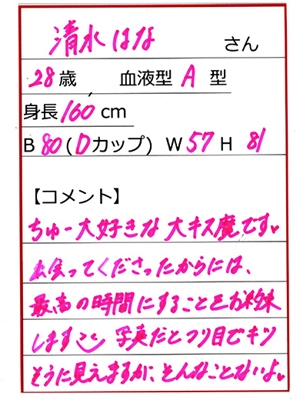 清水はな さん
28歳 血液型 A 型
身長160cm
B 80(Dカップ) W57H 81
【コメント】
ちゅー大好きな大キス魔です♥
出会ってくださったからには、
最高の時間にすることをお約束
します 写真だとつり目でキツ
そうに見えますが、そんなことないよ♥